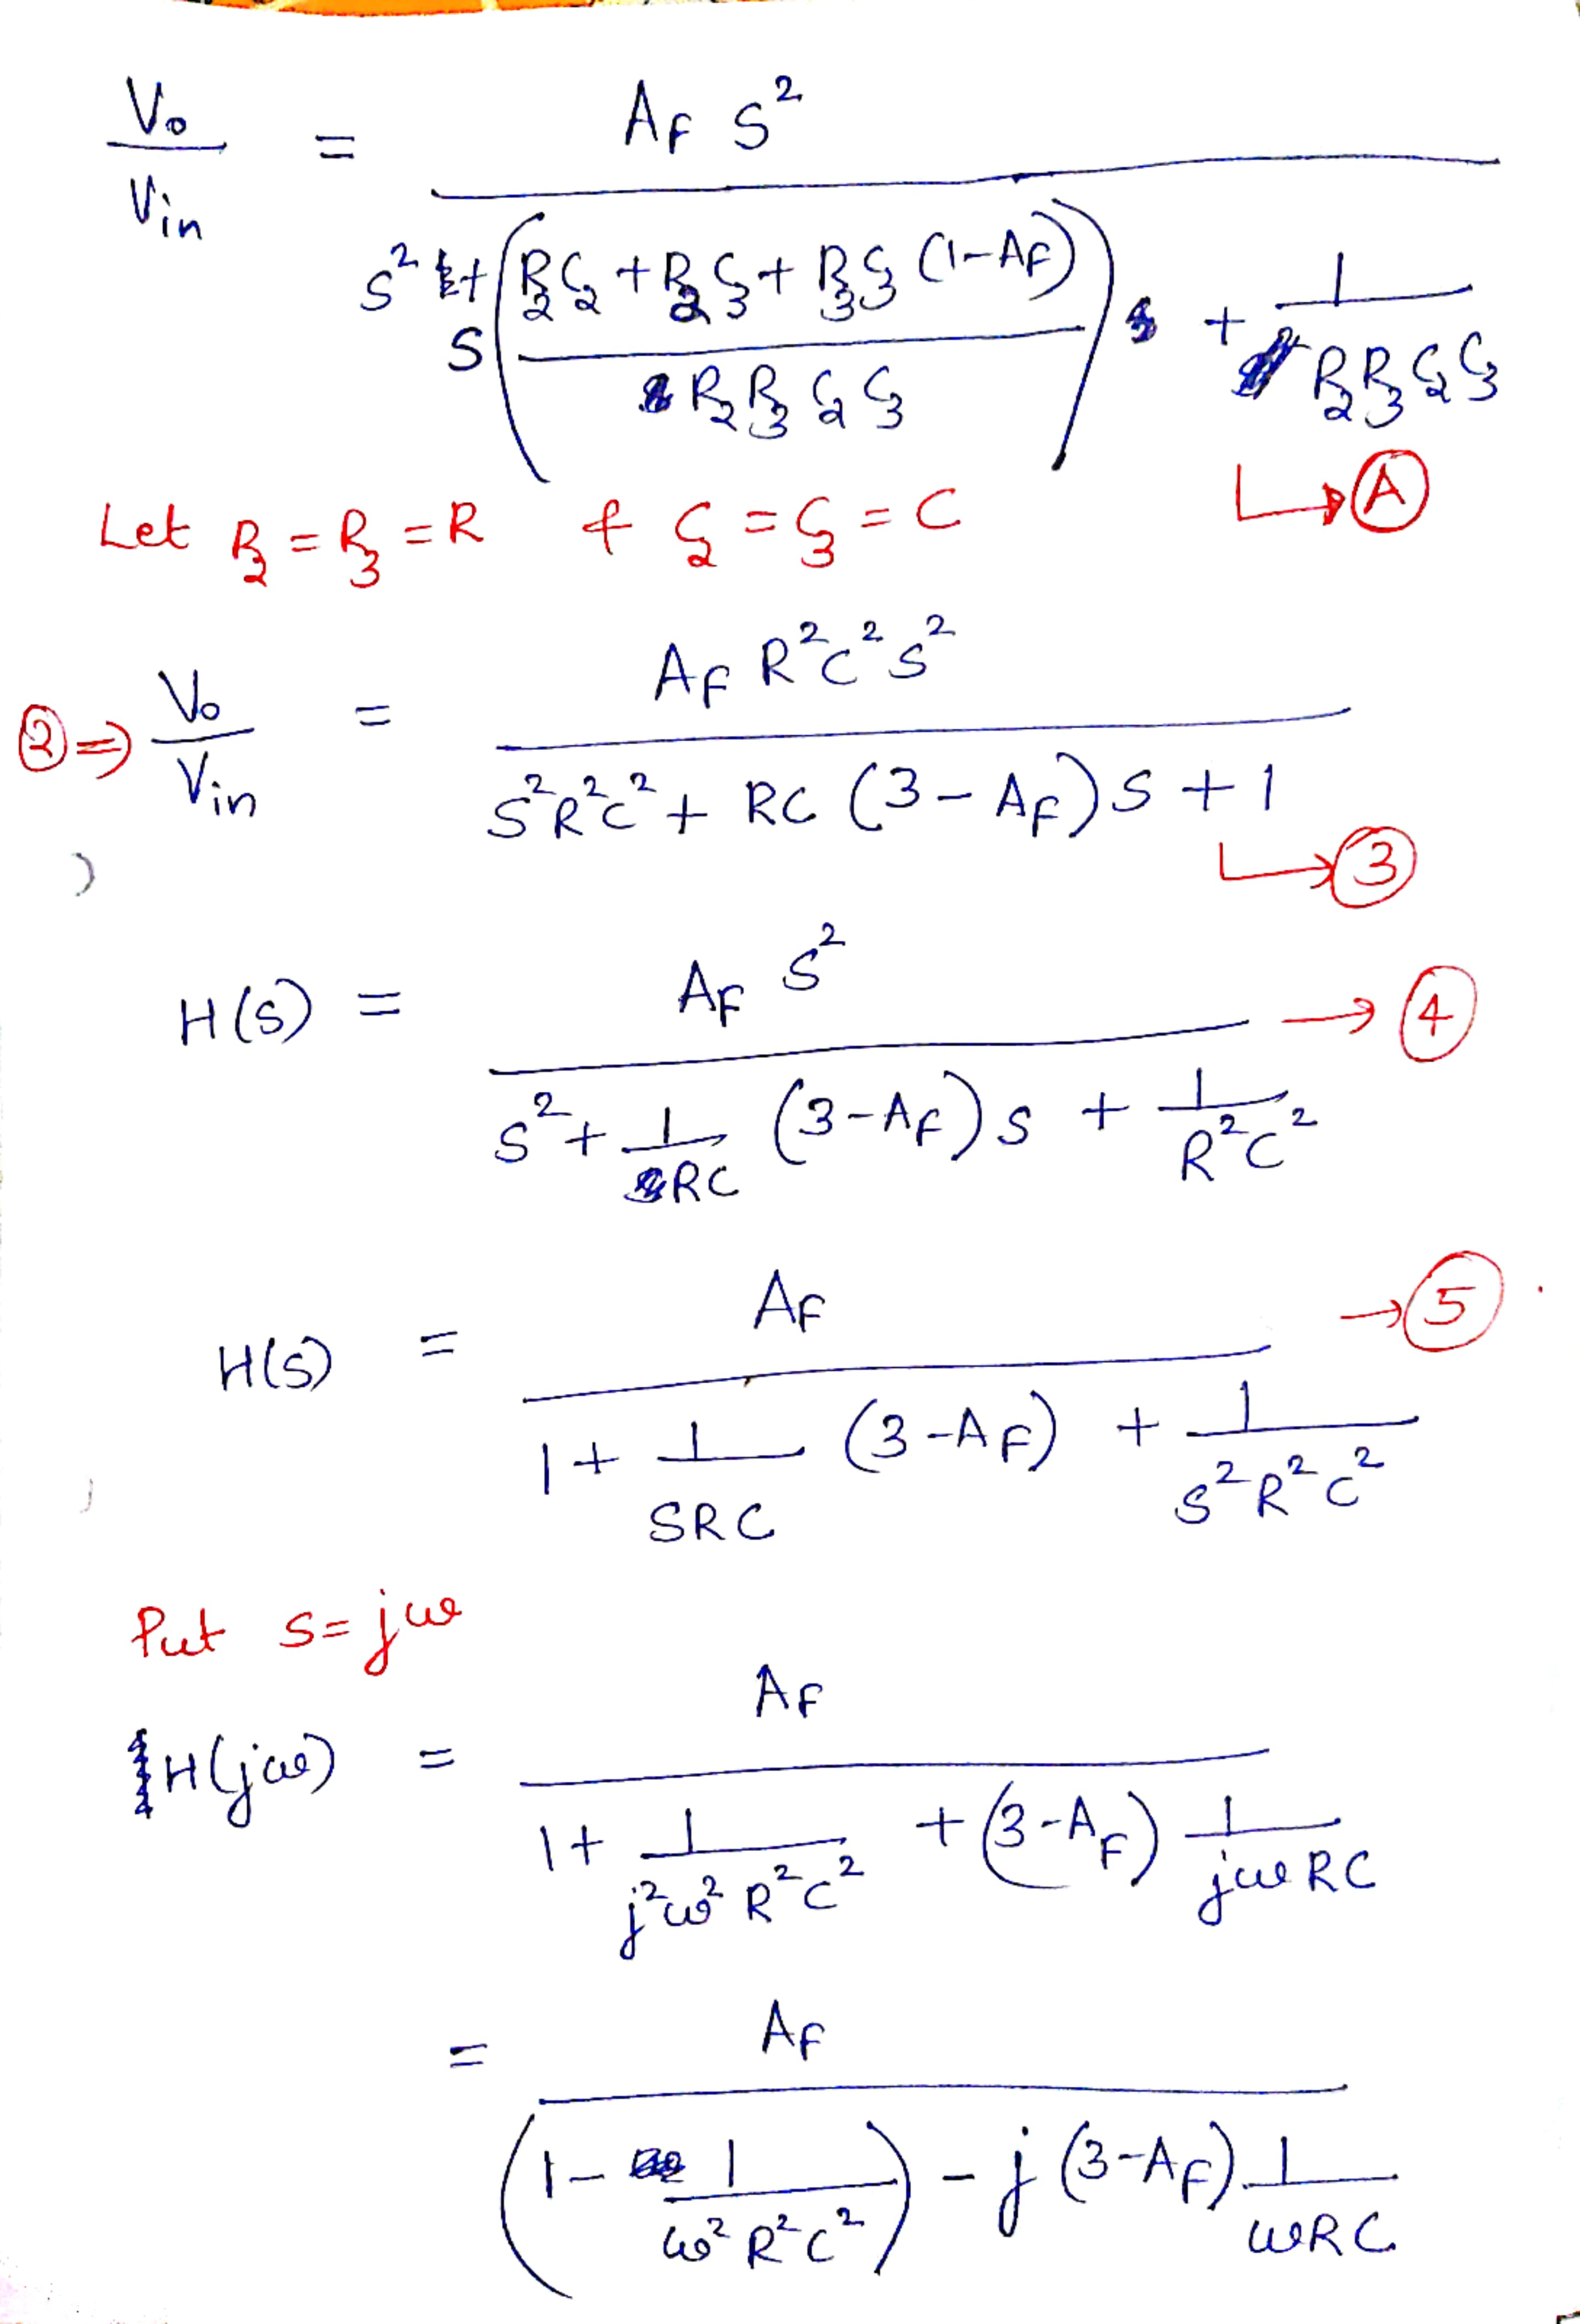 Vo / Vin = AF S² / ( S² + S ( (R₂C₂ + R₂C₃ + R₃C₃ (1-AF)) / (R₂R₃C₂C₃) ) + 1 / (R₂R₃C₂C₃) )
↳ (A)
Let R₂ = R₃ = R & C₂ = C₃ = C
(2) ⇒ Vo / Vin = AF R²C²S² / ( S²R²C² + RC (3 - AF) S + 1 )
↳ (3)
H(S) = AF S² / ( S² + 1/RC (3-AF) S + 1/R²C² ) → (4)
H(S) = AF / ( 1 + 1/SRC (3-AF) + 1/S²R²C² ) → (5)
Put S = jω
H(jω) = AF / ( 1 + 1/j²ω²R²C² + (3-AF) 1/jωRC )
= AF / ( (1 - 1/ω²R²C²) - j (3-AF) 1/ωRC )